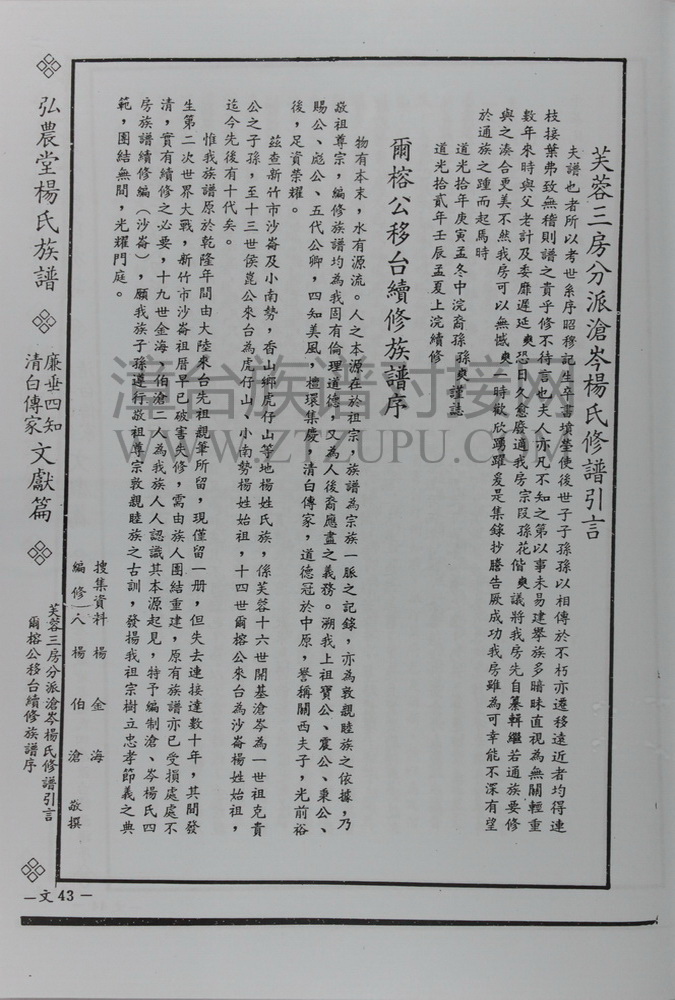 芙蓉三房分派滄岑楊氏修譜引言
夫譜也者所以考世系序昭穆記生卒書墳塋使後世子子孫孫以相傳於不朽亦遷移遠近者均得連
枝接葉弗致無稽則譜之貴乎修不待言也夫人亦凡不知之第以事未易建舉族多暗昧直視為無關輕重
數年來時與父老計及委靡遲延爽恐日久愈廢適我房宗段孫花偕爽議將我房先自纂輯繼若通族要修
與之湊合更美不然我房可以無憾爽一時歡欣踴躍爰是集錄抄謄告厥成功我房雖為可幸能不深有望
於通族之踵而起馬時
道光拾年庚寅孟冬中浣裔孫孫爽謹誌
道光拾貳年壬辰孟夏上浣續修
爾榕公移台續修族譜序
物有本末，水有源流。人之本源在於祖宗，族譜為宗族一脈之記錄，亦為敦親睦族之依據，乃
敬祖尊宗，編修族譜均為我固有倫理道德，又為人後裔應盡之義務。溯我上祖寶公、震公、秉公、
賜公、彪公、五代公卿，四知美風，禮環集慶，清白傳家，道德冠於中原，譽稱關西夫子，光前裕
後，足資榮耀。
茲查新竹市沙崙及小南勢，香山鄉虎仔山等地楊姓氏族，係芙蓉十六世開基滄岑為一世祖克貴
公之子孫，至十三世侯崑公來台為虎仔山、小南勢楊姓始祖，十四世爾榕公來台為沙崙楊姓始祖，
迄今先後有十代矣。
惟我族譜原於乾隆年間由大陸來台先祖親筆所留，現僅留一册，但失去連接達數十年，其間發
生第二次世界大戰，新竹市沙崙祖厝早已破害失修，需由族人團結重建，原有族譜亦已受損處處不
清，實有續修之必要，十九世金海、伯滄二人為我族人人認識其本源起見，特予編制滄、岑楊氏四
房族譜續修編（沙崙），願我族子孫遵行敬祖尊宗敦親睦族之古訓，發揚我祖宗樹立忠孝節義之典
範，團結無間，光耀門庭。
搜集資料　楊　金　海
編　修　人　楊　伯　滄　敬撰
弘農堂楊氏族譜
廉垂四知
清白傳家
文獻篇
芙蓉三房分派滄岑楊氏修譜引言
爾榕公移台續修族譜序
—文43—
涪台族譜对接网
WWW.ZTZUPU.COM